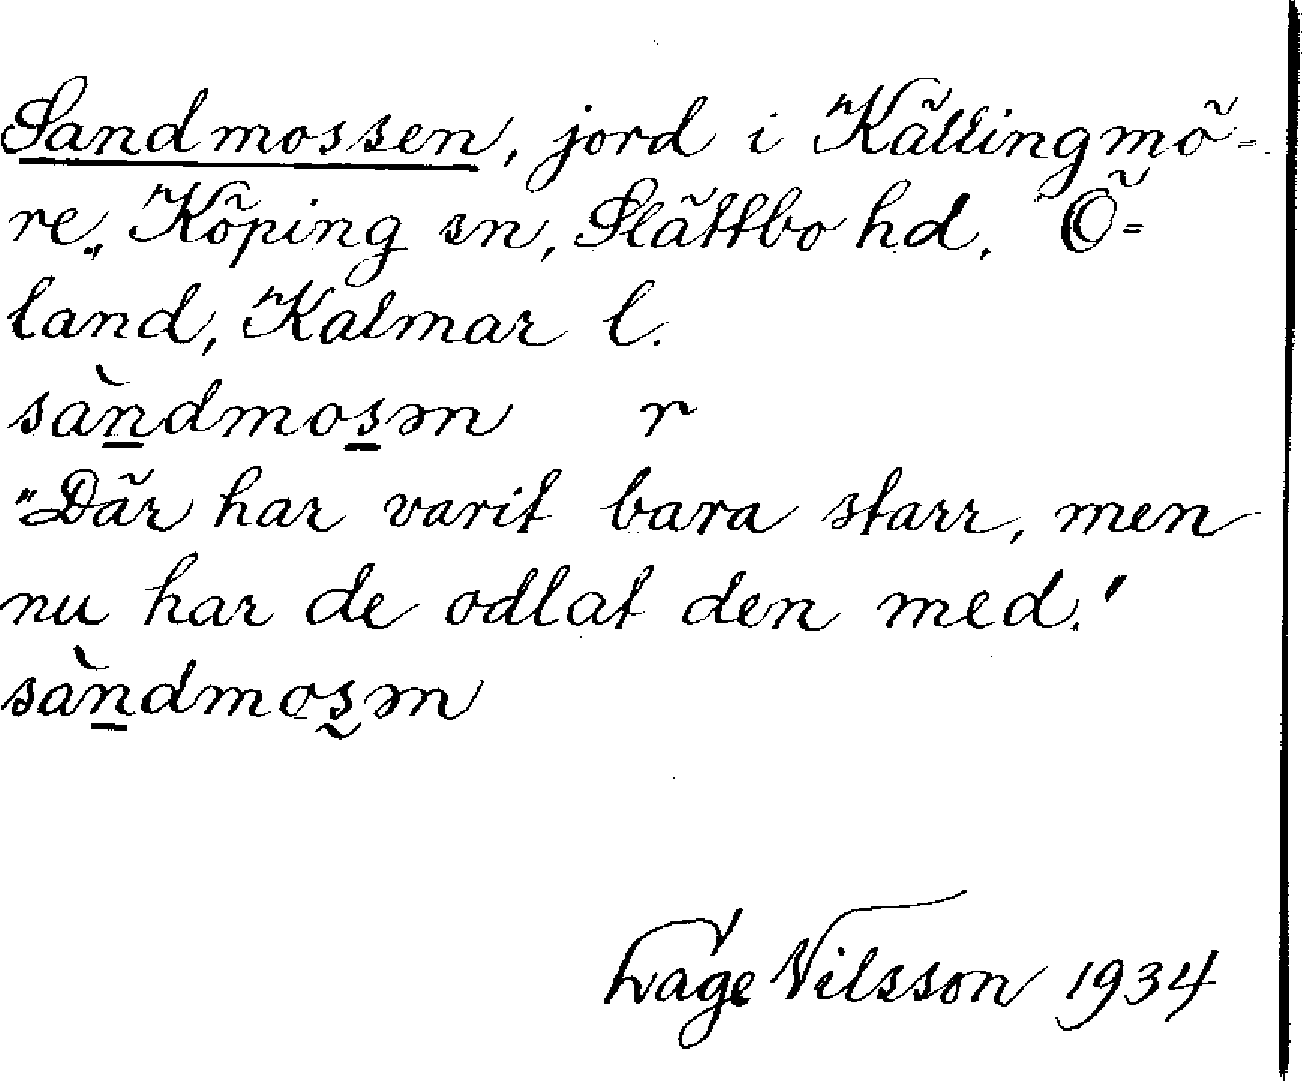 Sandmossen, jord i Källingmö-
re, Köping sn, Slättbo hd. Ö-
land, Kalmar l.
sàndmosən r
"Där har varit bara starr, men
nu har de odlat den med."
sàndmos̰ən
Nilsson 1934